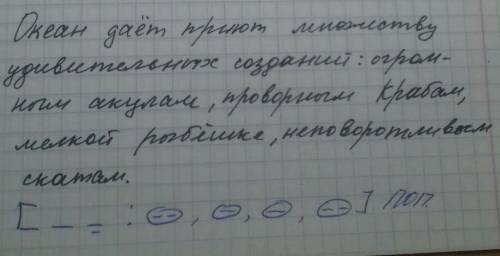 Океан даёт приют множеству
удивительных созданий: огром-
ным акулам, проворным крабам,
мелкой рыбёшке, неповоротливым
скатам.
[ — = : (--), (-), (-), (--) ] ПОП.